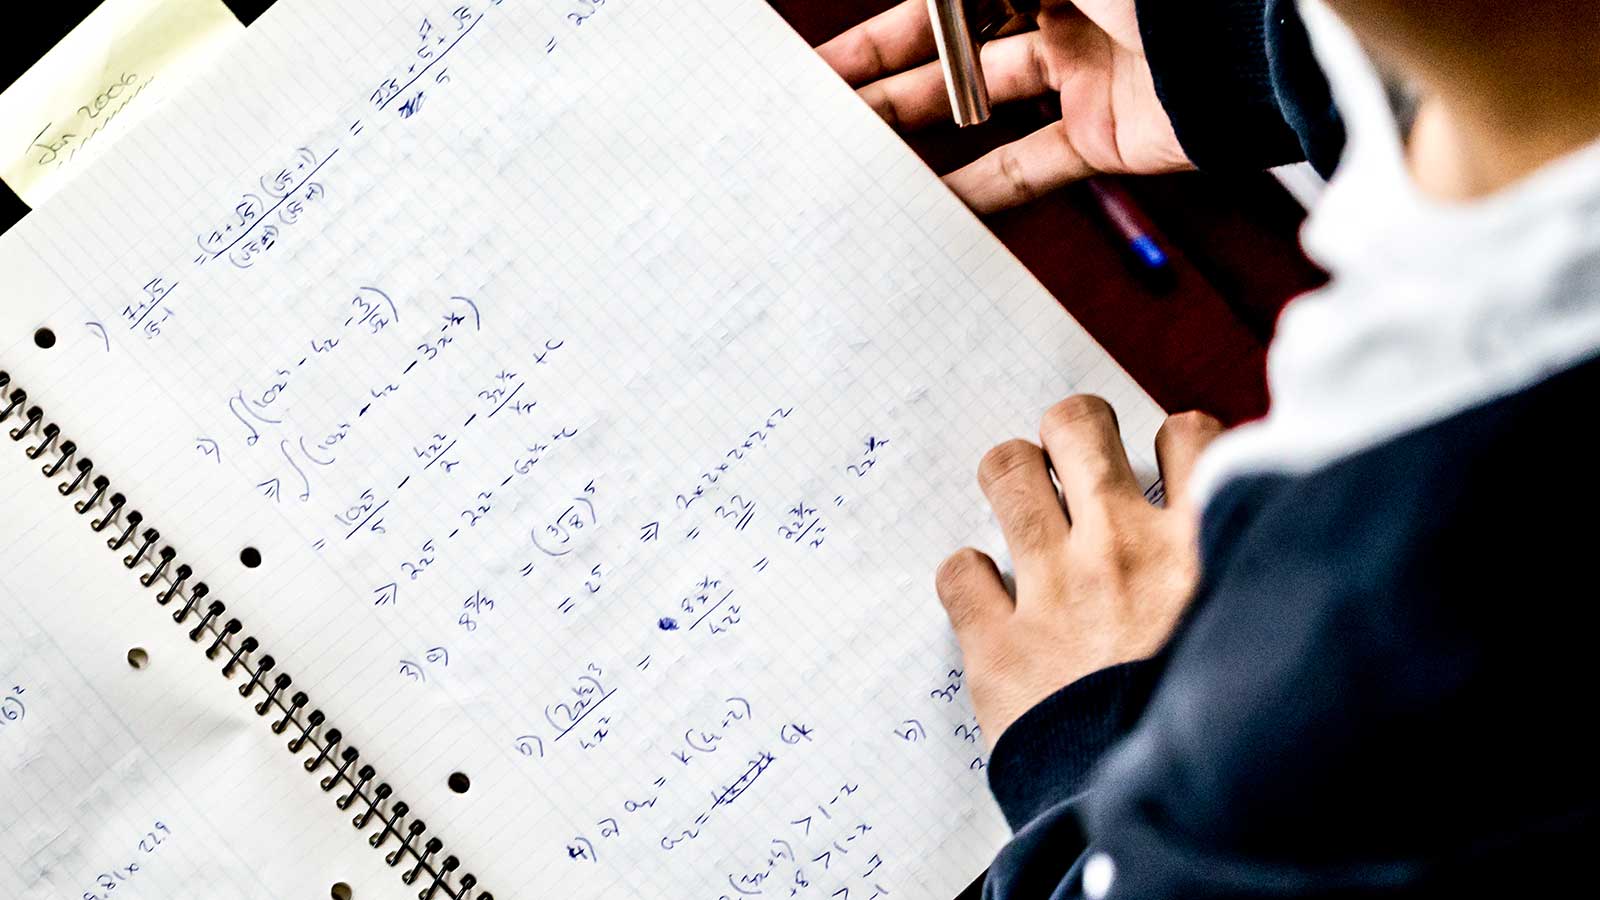 Jan 2006
1) 7+√5/√5-1 = (7+√5)(√5+1)/(√5-1)(√5+1) = 7√5+5+7+√5/5 =
2) ∫(10x⁴ - 4x - 3/√x)
⇒ ∫(10x⁴ - 4x - 3x^-½)
= 10x⁵/5 - 4x²/2 - 3x^½/½ + c
⇒ 2x⁵ - 2x² - 6x^½ + c
3) a) 8^5/3 = (3√8)⁵ ⇒ 2×2×2×2×2
= 2⁵ = 32
b) (2x^½)³/4x² = 8x^3/2/4x² = 2x^3/2/x² = 2x^-½
4) a) a₂ = k(4+2)
a₂ = 6k
b) 3x²
(3x+4) > 1-x
+8 > 1-x
6)²
9.81 × 229